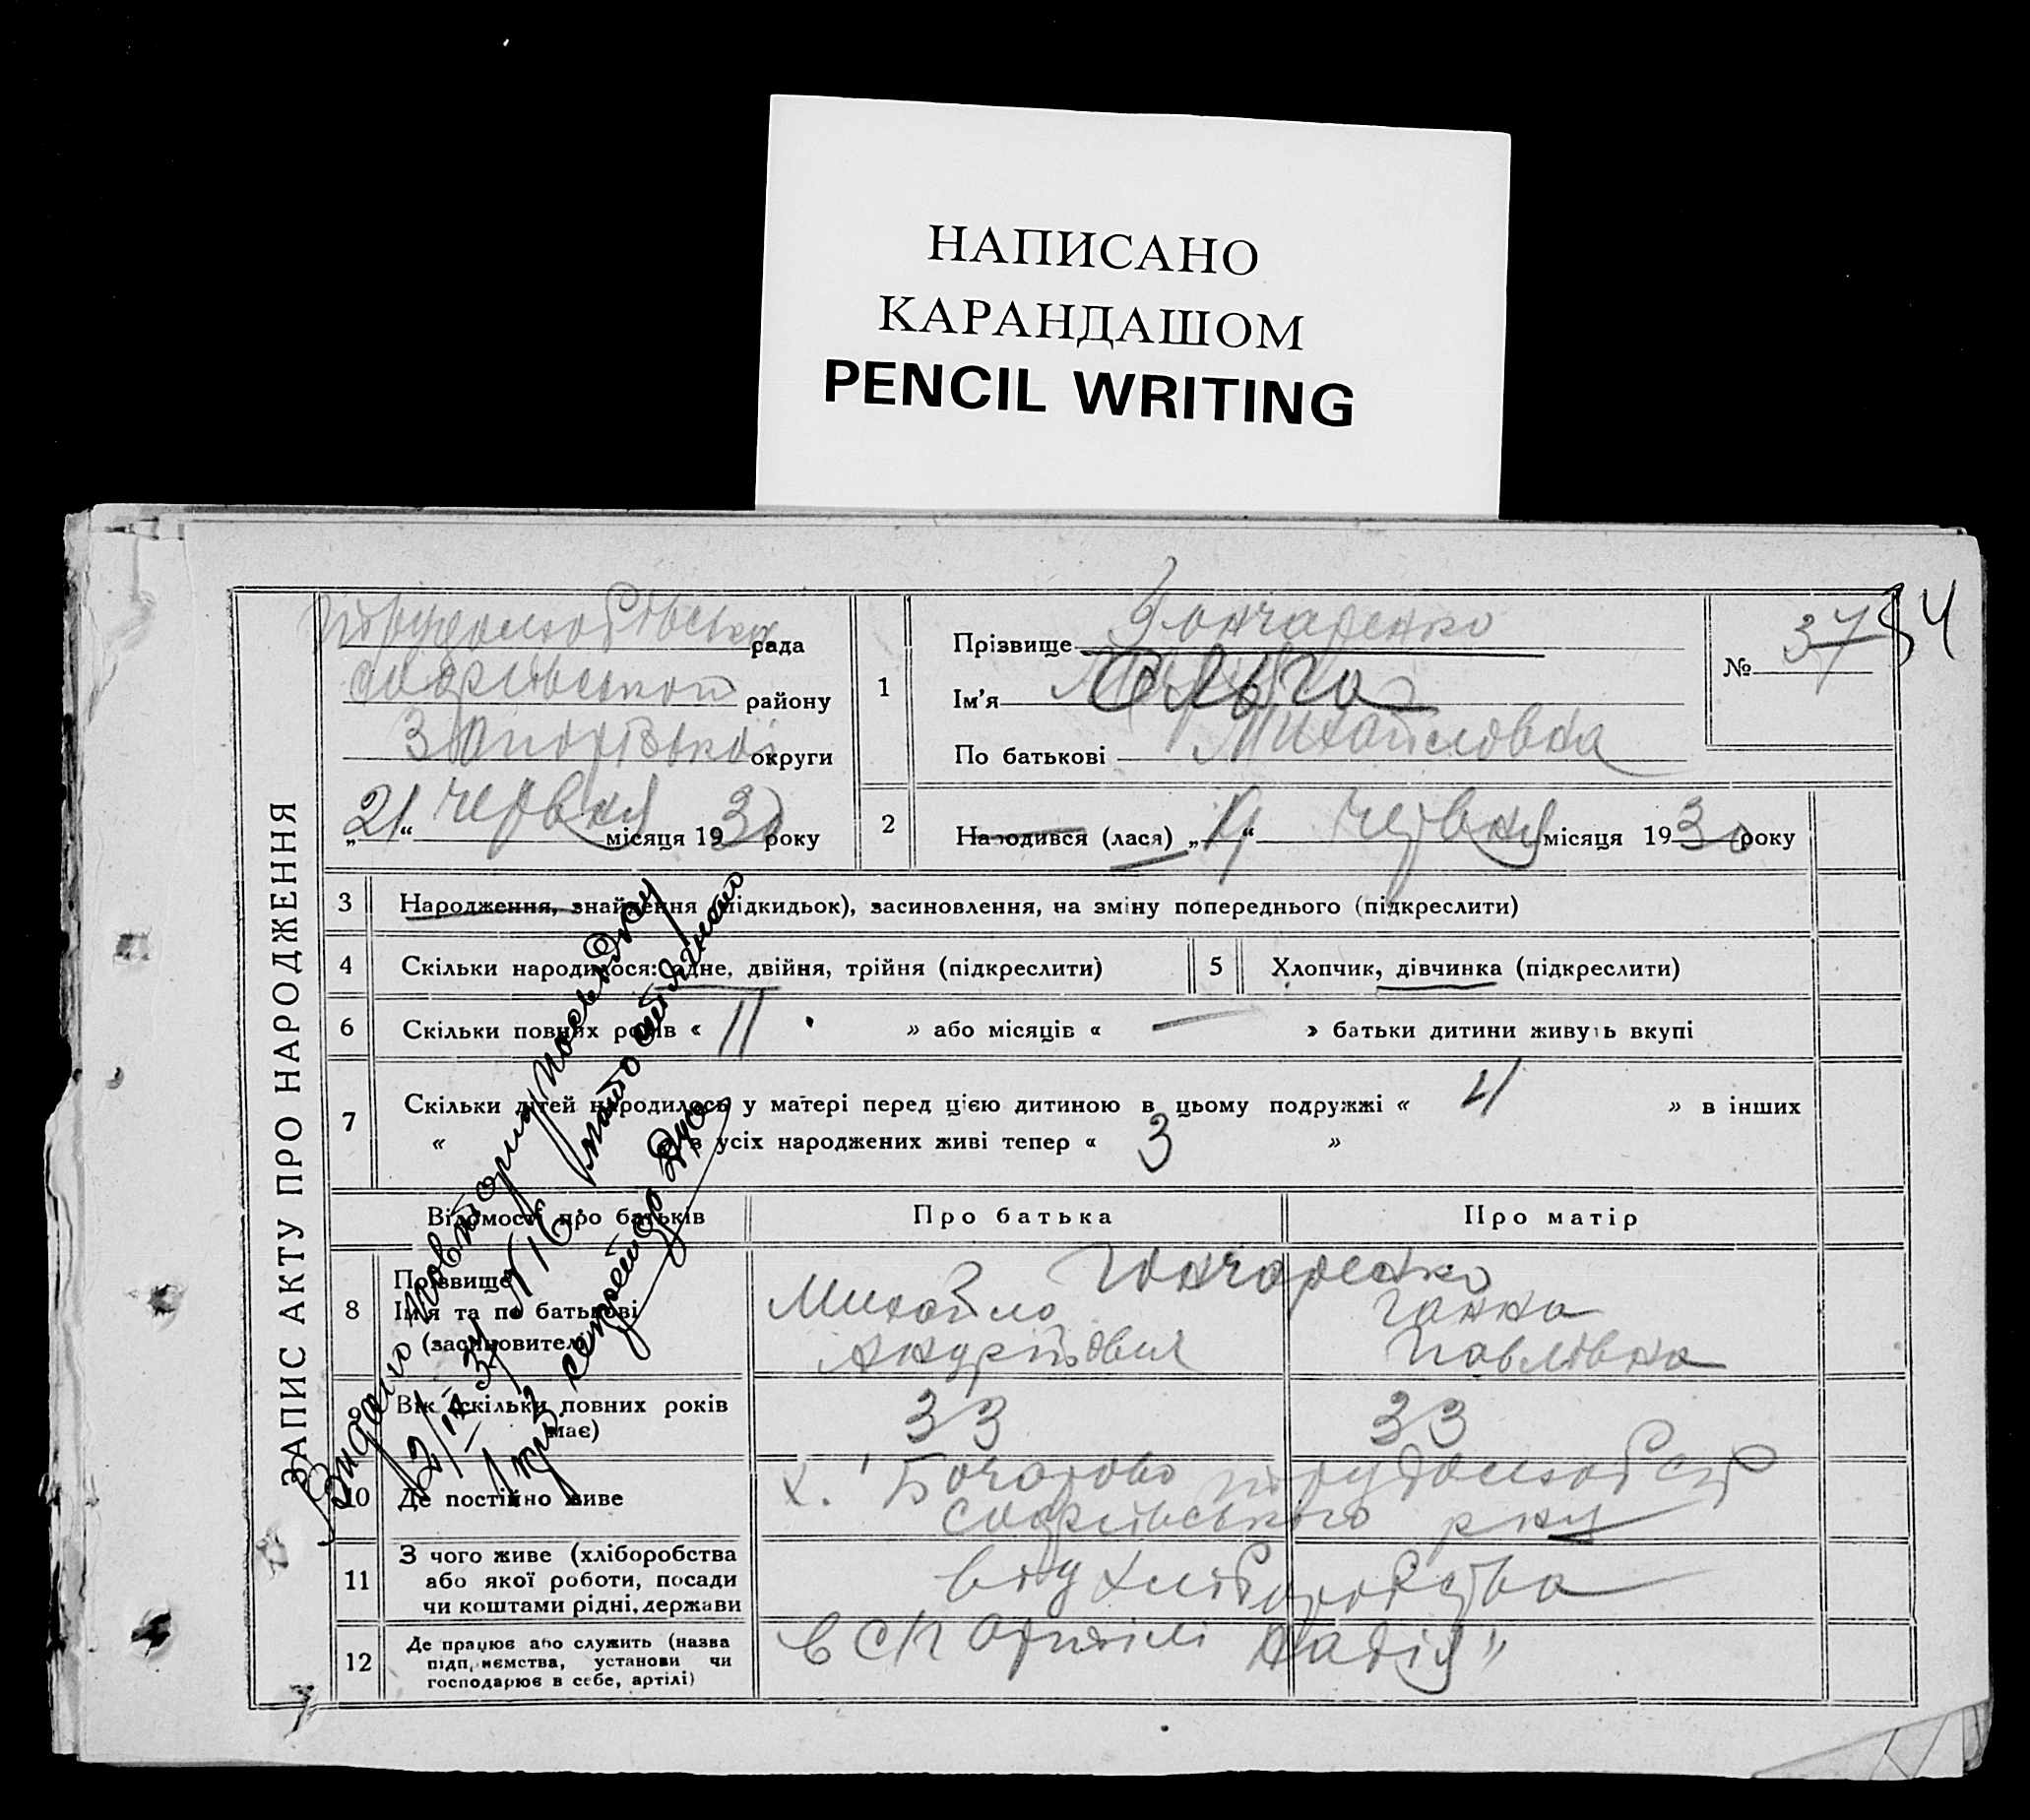 НАПИСАНО
КАРАНДАШОМ
PENCIL WRITING
ЗАПИС АКТУ ПРО НАРОДЖЕННЯ
Трудолюбівська рада
Софіївської району
Запорізької округи
„21“ червня місяця 1930 року
1
Прізвище Гончаренко
Ім'я Ольга
По батькові Михайловна
№ 37
84
2
Народився (лася) „19“ червня місяця 1930 року
3 Народження, знайдення (підкидьок), засиновлення, на зміну попереднього (підкреслити)
4 Скільки народилося: одне, двійня, трійня (підкреслити)
5 Хлопчик, дівчинка (підкреслити)
6 Скільки повних років « 11 » або місяців « — » батьки дитини живуть вкупі
7 Скільки дітей народилось у матері перед цією дитиною в цьому подружжі « 4 » в інших
« з усіх народжених живі тепер « 3 »
Відомості про батьків Про батька Про матір
8 Прізвище Гончаренко
Ім'я та по батькові Михайло Ганна
(засновителі) Андрійович Павлівна
9 Вік (скільки повних років має) 33 33
10 Де постійно живе х. Бочарово Трудолюб с/р
Софіївського р-ну
11 З чого живе (хліборобства
або якої роботи, посади
чи коштами рідні, держави
від хліборобства
12 Де працює або служить (назва
підприємства, установи чи
господарює в себе, артілі)
в СК Артілі Надія"
Видано повторну